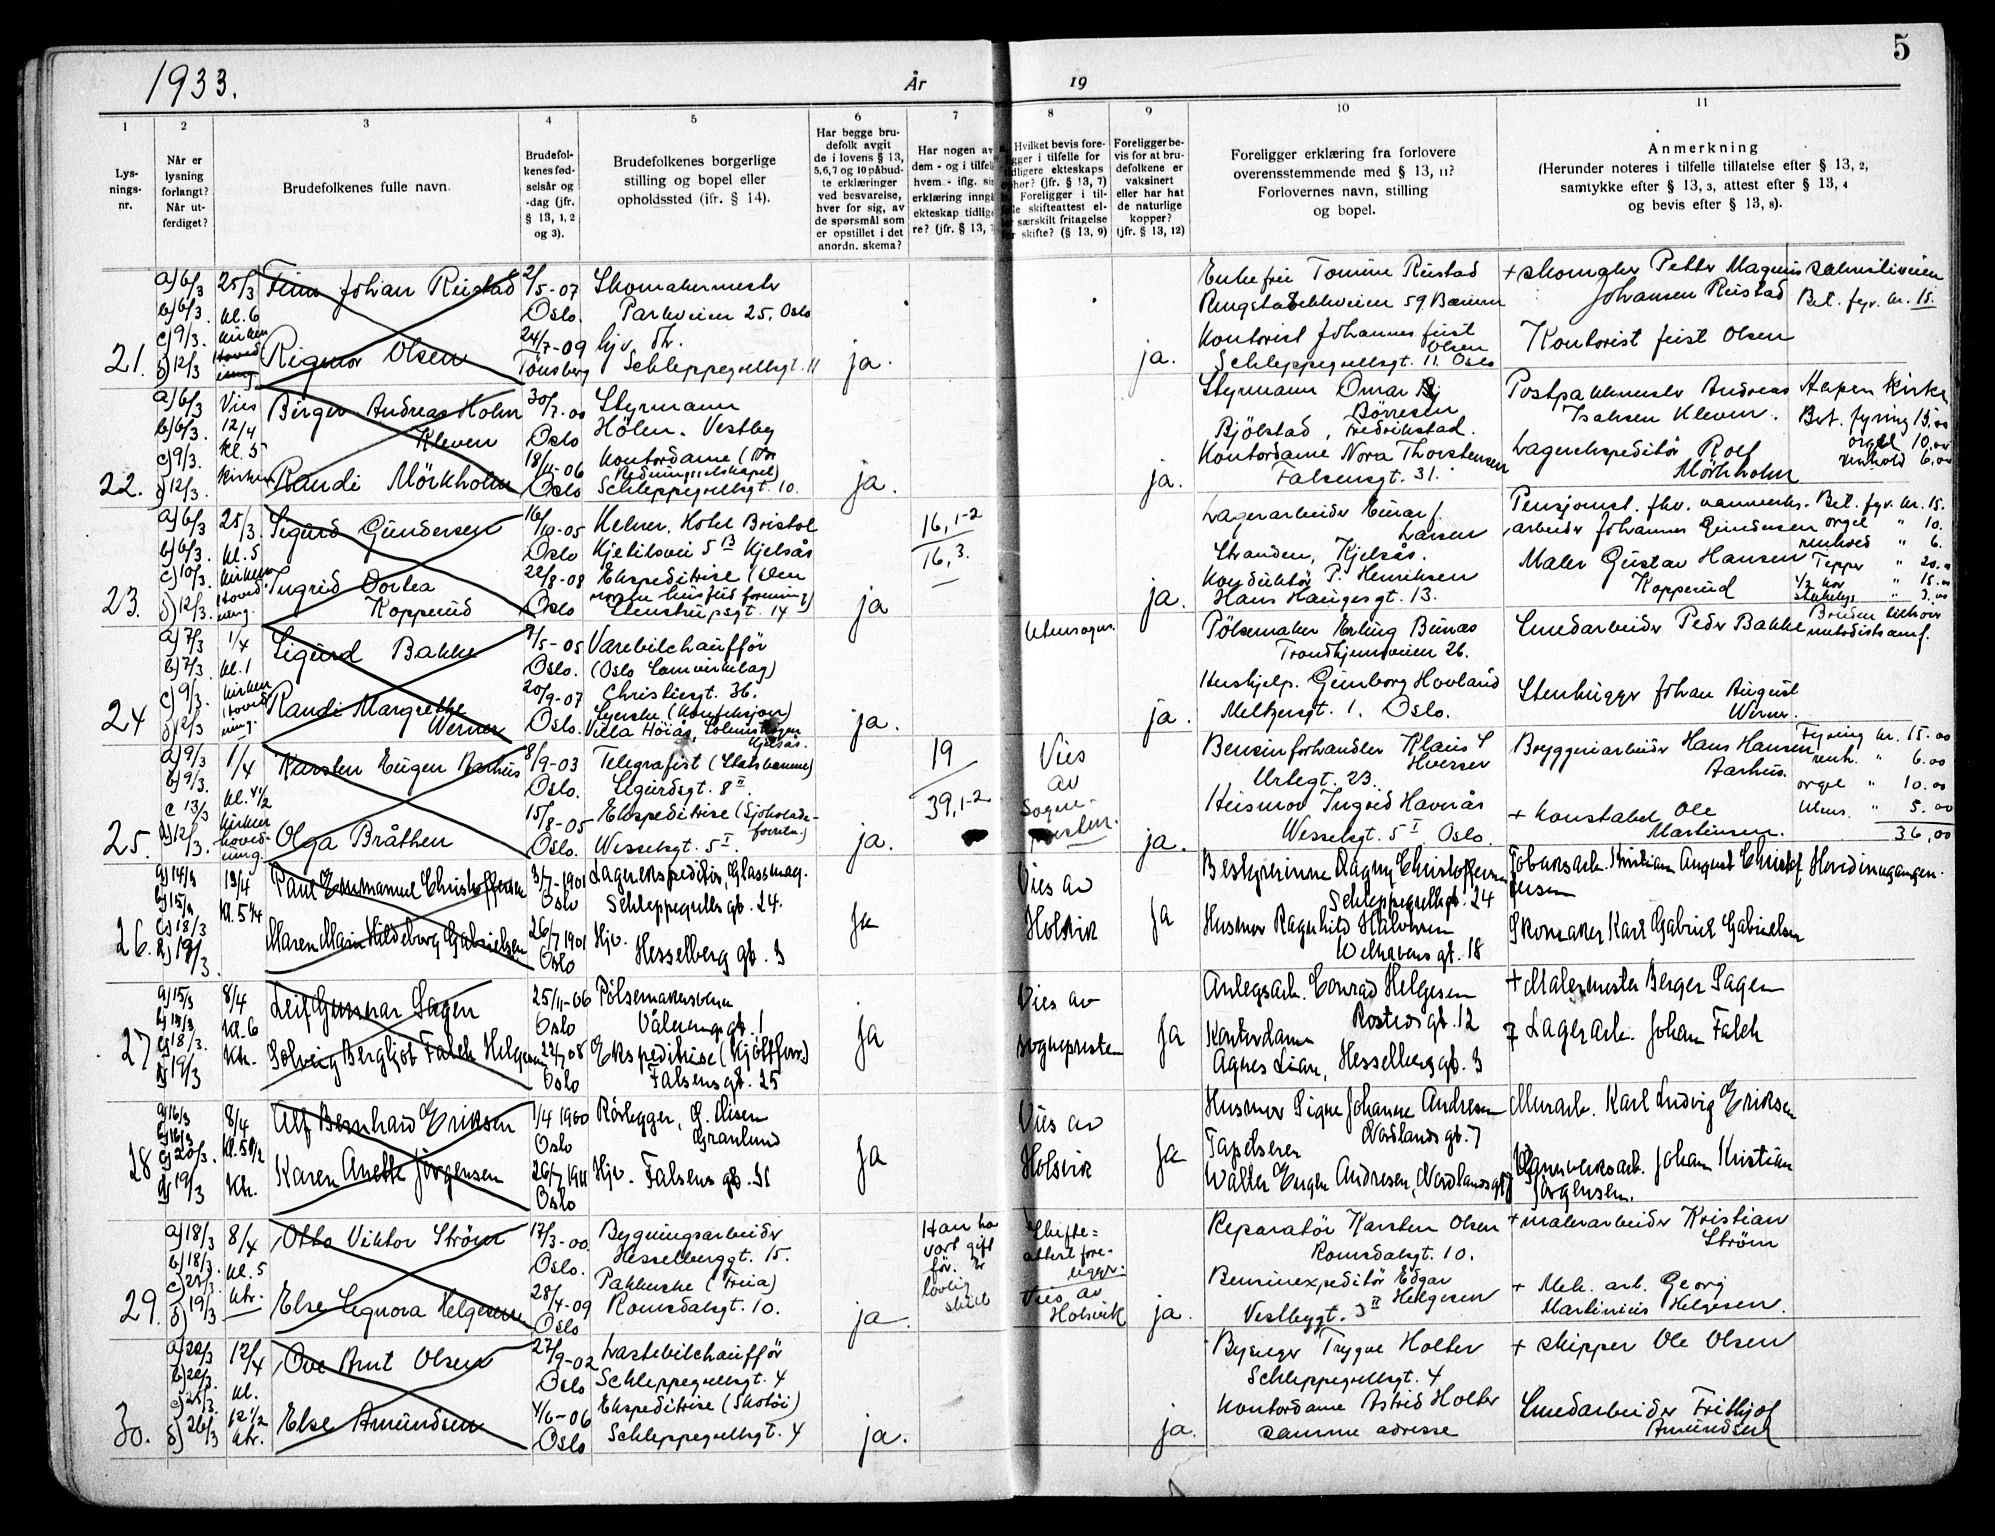 1933.
År
19
5
1
2
3
4
5
6
7
8
9
10
11
Lys-
nings-
nr.
Når er
lysning
forlangt?
Når ut-
ferdiget?
Brudefolkenes fulle navn.
Brudefol-
kenes fød-
selsår og
-dag (jfr.
§ 13, 1, 2
og 3).
Brudefolkenes borgerlige
stilling og bopel eller
opholdssted (jfr. § 14).
Har begge bru-
defolk avgit
de i lovens § 13,
5,6,7 og 10 påbud-
te erklæringer
ved besvarelse,
hver for sig, av
de spørsmål som
er opstillet i det
anordn. skema?
Har nogen av
dem - og i tilfelle
hvem - iflg. sin
erklæring inngå
ekteskap tidlige
re? (jfr. § 13, 7
Hvilket bevis fore-
gger i tilfelle for
idligere ekteskaps
phør? (jfr. § 13, 7)
Foreligger i til-
felle skifteattest el-
er særskilt fritagelse
for skifte? (§ 13, 9)
Foreligger be-
vis for at bru-
defolkene er
vaksinert
eller har hat
de naturlige
kopper?
(jfr. § 13, 12)
Foreligger erklæring fra forlovere
overensstemmende med § 13, 11?
Forlovernes navn, stilling
og bopel.
Anmerkning
(Herunder noteres i tilfelle tillatelse efter § 13, 2,
samtykke efter § 13, 3, attest efter § 13, 4
og bevis efter § 13, 8).
21.
a) 6/3
b) 6/3.
c) 9/3.
d) 12/3
25/3
kl. 6
kirken
Finn Johan Reistad
Rigmor Olsen
2/5-07
Oslo.
24/7-09
Tønsberg
Skomakermester
Parkveien 25, Oslo
hjv. dtr.
Schleppegrellsgt. 11
ja.
ja.
Enkefru Tomine Reistad
Ringstabekkveien 59 Bærum
Kontorist Johannes Juist
Olsen
Schleppegrellsgt. 11. Oslo
+ skomaker Petter Magnus
Johansen Reistad
Bet. fyr. kr. 15.
Kontorist Juist Olsen
22.
a) 6/3
b) 6/3.
c) 9/3.
d) 12/3.
Vies
12/4
kl. 5
kirken
Birger Andreas Holm
Kleven
Randi Mörkholm
30/7-00
Oslo
18/11-06
Oslo
Styrmann
Hölen. Vestby
Kontordame
Schleppegrellsgt. 10.
ja.
ja.
Styrmann Omar
Börresen
Bjölstad, Fredrikstad.
Kontordame Nora Thorstensen
Falsensgt. 31.
Postpakkmester Andreas
Isaksen Kleven.
Lagerekspeditör Rolf
Mörkholm
Hapen kirke
Bet. fyring 15,00
orgel 10,00
renhold 6,00
23.
a) 6/3
b) 6/3.
c) 10/3.
d) 12/3
25/3.
kl. 5
kirken
Sigurd Gundersen
Ingrid Dorthea
Kopperud
16/10-05
Oslo
22/8-08
Oslo
Kelner. Hotel Bristol
Kjelsåsvei 5 B Kjelsås
Ekspeditrise (Den
norske husflid forening)
Stenstrupsgt. 14
ja
16, 1-2
16, 3.
ja.
Lagerarbeider Einar
Larsen
Stranden, Kjelsås.
Konduktör P. Henriksen
Hans Haugesgt. 13.
Pensjonist. fhv. vannverks-
arbeider Johannes Gundersen
Maler Gustav Hansen
Kopperud
Bet. fyr. kr. 15.
orgel " 10.
renhold " 6.
Tepper " 20.00
1/2 kor " 15.00
24
a) 7/3
b) 7/3.
c) 9/3.
d) 12/3
1/4
kl. 1
kirken
Sigurd Bakke
Randi Margrethe
Werner
1/5-05
Oslo.
20/9-07
Oslo.
Varebilchaufför
(Oslo Samvirkelag)
Christiesgt. 36.
Syerske (Konfeksjon)
Villa Höiås,
Kjelsås.
ja.
Utensogns.
ja.
Pölsemaker Erling Bunæs
Trondhjemsveien 26.
Hushjelp. Gunborg Hovland
Meltzersgt. 1. Oslo.
Smedarbeider Peder Bakke
Stenhugger Johan August
Werner.
Bruden tilhörer
metodistsamf.
25.
a) 9/3
b) 9/3.
c 13/3
d) 12/3.
1/4
kl. 4 1/2
kirken
hoved-
inng.
Karsten Eugen Aarhus
Olga Bråthen
8/9-03
Oslo.
15/8-05
Oslo.
Telegrafist (Statsbanene)
Sigurdsgt. 8 II
Ekspeditrise (Sjokolade-
forretn.)
Wesselsgt. 5 I.
ja.
19
39, 1-2
Vies
av
Sogne-
presten.
ja.
Bensinforhandler Klaus S
Hvesser
Urtegt. 23.
Husmor Ingrid Havrås
Wesselsgt. 5 I Oslo.
Bryggeriarbeider Hans Hansen
Aarhus.
+ Konstabel Ole
Martinsen.
Fyring kr. 15.00
renh. " 6.00
orgel " 10.00
Utens. " 5.00
36,00
26.
a) 14/3
b) 15/3
c) 18/3
d) 19/3.
19/4
Kl. 5 1/4
Paul Emmanuel Christoffersen
Maren Marie Hildeborg Gabrielsen
3/7-1901
Oslo
26/7 1901
Oslo
Lagerekspeditör, Glassmag.
Schleppegrells gt. 24.
Hjv.
Hesselberg gt. 3
Ja
Vies av
Holsvik
Ja
Bestyrerinne Dagny Christoffersen
Schleppegrellsgt. 24
Husmor Ragnhild Halvorsen
Welhavens gt. 18
Fabrikarb. Kristian August Christof
fersen
Hovedinngangen.
Skomaker Karl Gabriel Gabrielsen
27
a) 15/3
b) 15/3
c) 18/3.
d) 19/3
8/4
Kl. 6
Kr.
Leif Gunnar Sagen
Solveig Bergljot Falch Helgesen
25/11-06
Oslo
22/7 08
Oslo
Pölsemakersvenn
Vålerengs gt. 1
Ekspeditrise (Kjöttforr.)
Falsens gt. 25
Ja
Vies av
sognepresten
Ja
Anlegsarb. Conrad Helgesen
Rosteds gt. 12
Kontordame
Agnes Lian, Hesselberg gt. 3
+ Malermester Berger Sagen
+ Lagerarb. Johan Falch
28
a) 16/3
b) 16/3
c) 20/3.
d) 19/3
8/4
Kl. 5 1/2
Kr.
Alf Bernhard Eriksen
Karen Anette Jörgensen
1/4 1900
Oslo
26/7 1911
Oslo
Rörlegger, G. Olsen
Granlund
Hjv. Falsens gt. 31
Ja
Vies av
Holsvik
Ja
Husmor Signe Johanne Andresen
Nordlands gt. 7
Tapetserer
Walter Eugen Andresen, Nordlands gt 7
Murarb. Karl Ludvig Eriksen
Vannverksarb. Johan Kristian
Jörgensen.
29.
a) 18/3
b) 18/3.
c) 23/3.
d) 19/3
8/4
kl. 5
kr.
Otto Viktor Ström
Else Legnora Helgesen
17/3-00.
Oslo.
28/4-09
Oslo
Bygningsarbeider
Hesselberggt. 15.
Pakkerske (Freia)
Romsdalsgt. 10.
ja.
Han har
vært gift
för. Er
lovlig
skilt
Skifte-
attest fore-
ligger.
Vies av
Holsvik
ja.
Reparatör Karsten Olsen
Romsdalsgt. 10.
Bensinexpeditör Edgar
Helgesen
Vestbygt. 3 II
+ malerarbeider Kristian
Ström
+ Mek. arb. Georg
Martinius Helgesen.
30.
a) 22/3
b) 22/3.
c) 25/3.
d) 26/3
12/4
kl.
12 1/2
kr.
Ove Brut Olsen
Else Amundsen
27/9-02
Oslo
4/6-06
Oslo
Lastebilchaufför
Schleppegrellsgt. 4
Ekspeditrise (Skotöi)
Schleppegrellsgt. 4
ja.
ja.
Trygve Holter
Schleppegrellsgt. 4
Kontordame Astrid Holter
samme adresse
+ skipper Ole Olsen
Smedarbeider Frithjof
Amundsen